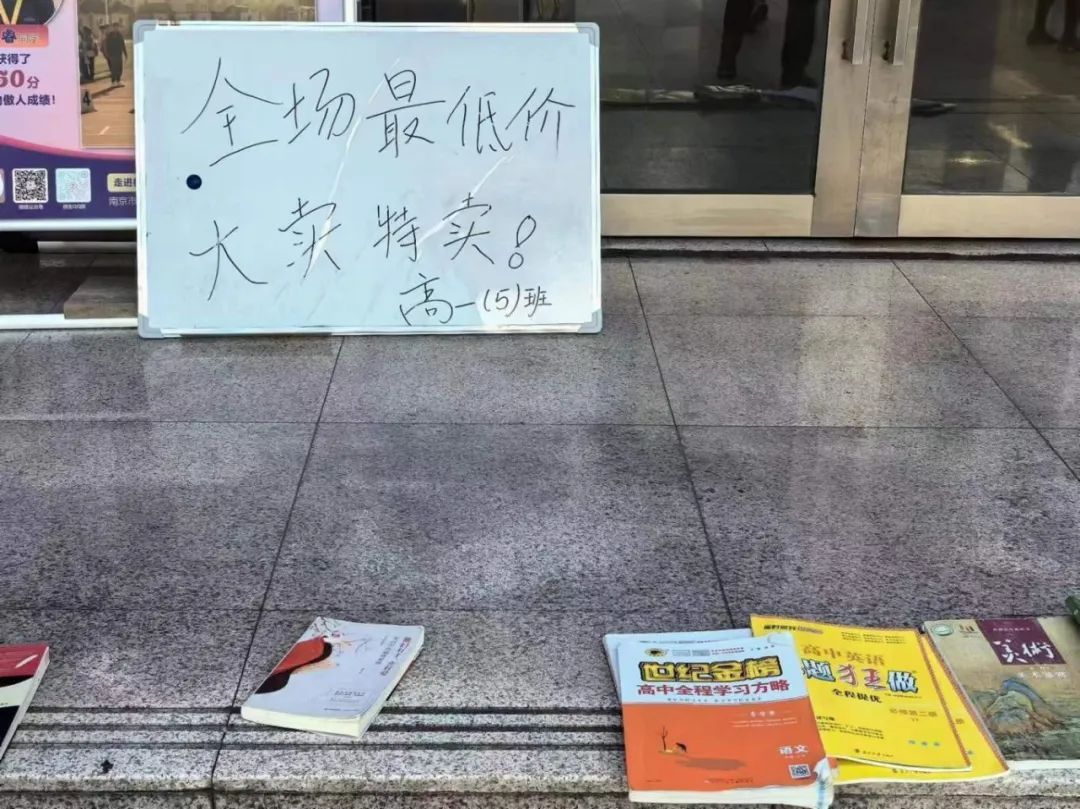 获得了
60分
傲人成绩!
走进
南京市
全场最低价
大卖特卖!
高一(5)班
世纪金榜
高中全程学习方略
语文
高中英语
题狂做
全程提优
必修第二册
美术